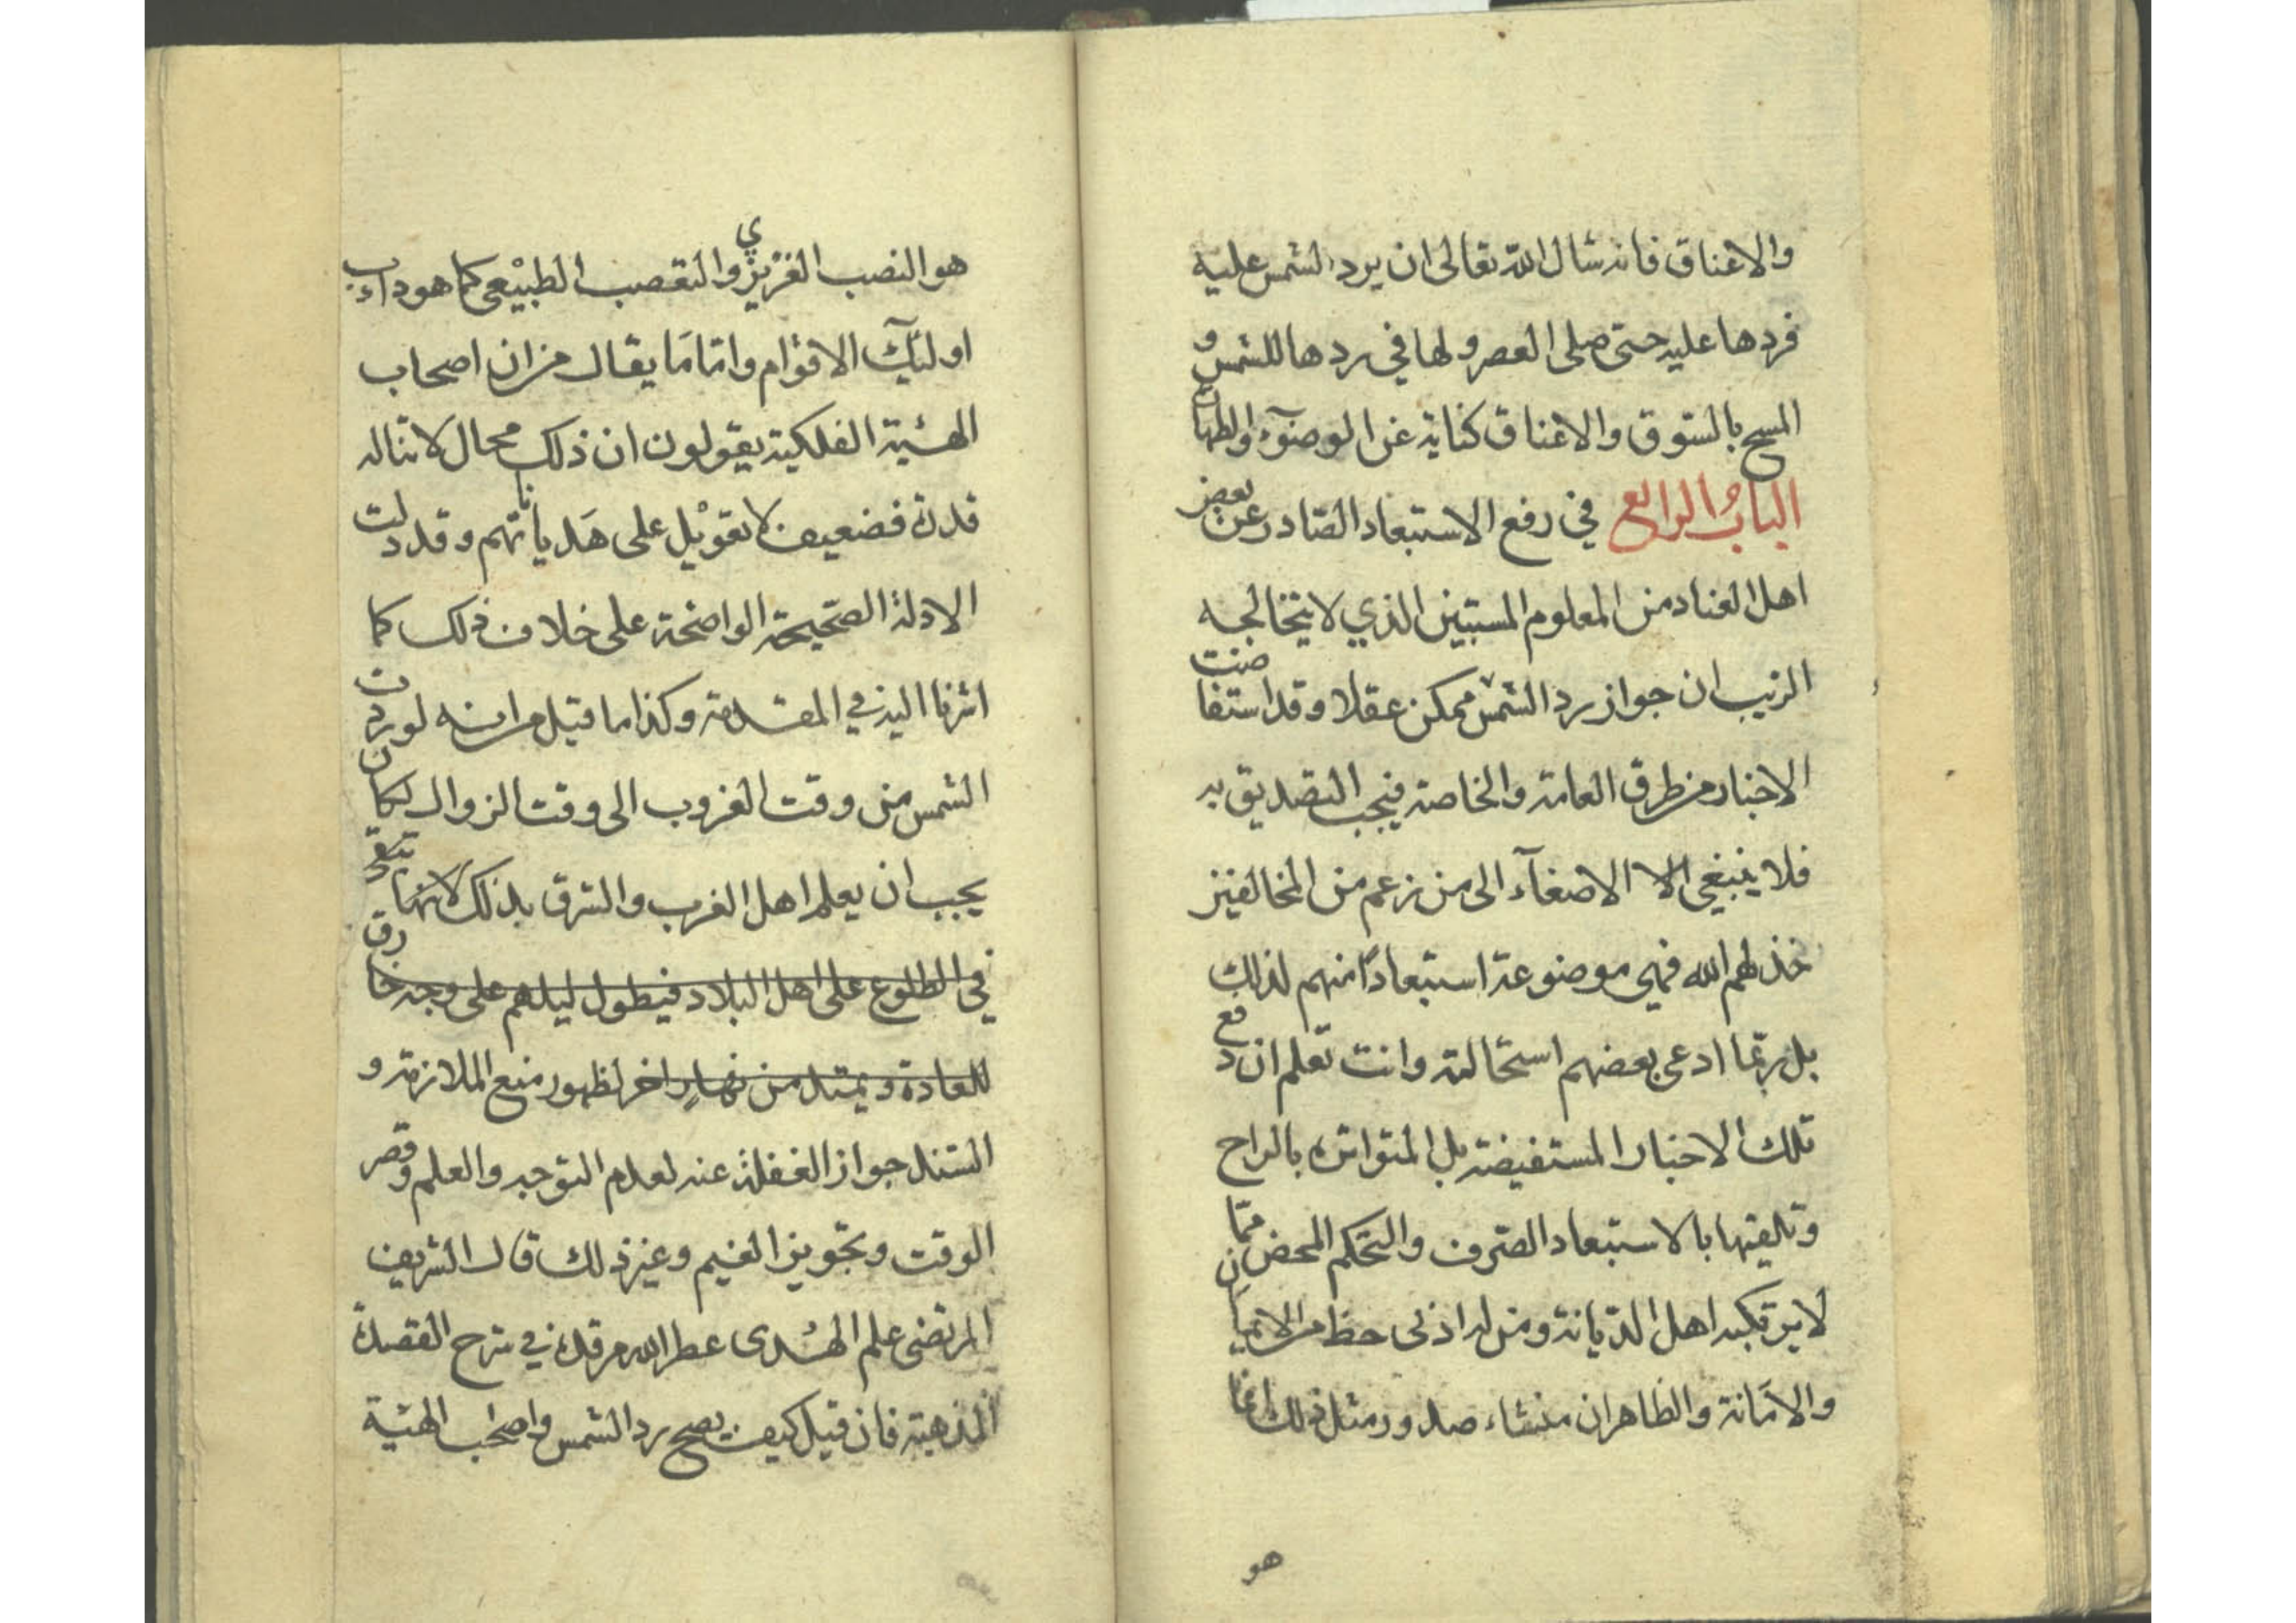 والاعناق فانه سال الله تعالى ان يرد الشمس عليه
فردها عليه حتى صلى العصر ولها في ردها للشمس و
المسح بالسوق والاعناق كناية عن الوضوء والطهارة
الباب الرابع في رفع الاستبعاد الصادر عن بعض
اهل العناد من المعلوم المستبين الذي لا يتخالجه
الريب ان جواز رد الشمس ممكن عقلا وقد استفاضت
الاخبار من طرق العامة والخاصة فيجب التصديق به
فلا ينبغي الا الاصغاء الى من زعم من المخالفين
خذلهم الله فهي موضوعة استبعادا منهم لذلك
بل ربما ادعى بعضهم استحالته وانت تعلم ان دفع
تلك الاخبار المستفيضة بل المتواترة بالراح
وتلقيها بالاستبعاد الصرف والتحكم المحض مما
لا يرتكبه اهل الديانة ومن له ادنى حظ من الايمان
والامانة والظاهر ان منشاء صدور مثل ذلك انما
هو
هو النصب الغريزي والتعصب الطبيعي كما هو داءب
اولئك الاقوام واما ما يقال من ان اصحاب
الهيئة الفلكية يقولون ان ذلك محال لا تناله
قدرة فضعيف لا تعويل على هذياناتهم وقد دلت
الادلة الصحيحة الواضحة على خلاف ذلك كما
اشرنا اليه في المقدمة وكذا ما قيل من انه لو ردت
الشمس من وقت الغروب الى وقت الزوال لكان
يجب ان يعلم اهل الغرب والشرق بذلك لانها تبقى
في الطلوع على اهل البلاد فيطول ليلهم على وجه خارق
للعادة ويمتد من نهار اخر لظهور منع الملازمة و
السند جواز الغفلة عنه لعدم التوجه والعلم وقصر
الوقت وتجويز الغيم وغير ذلك قال الشريف
المرتضى علم الهدى عطر الله مرقده في شرح القصيدة
المذهبة فان قيل كيف يصح رد الشمس واصحاب الهيئة